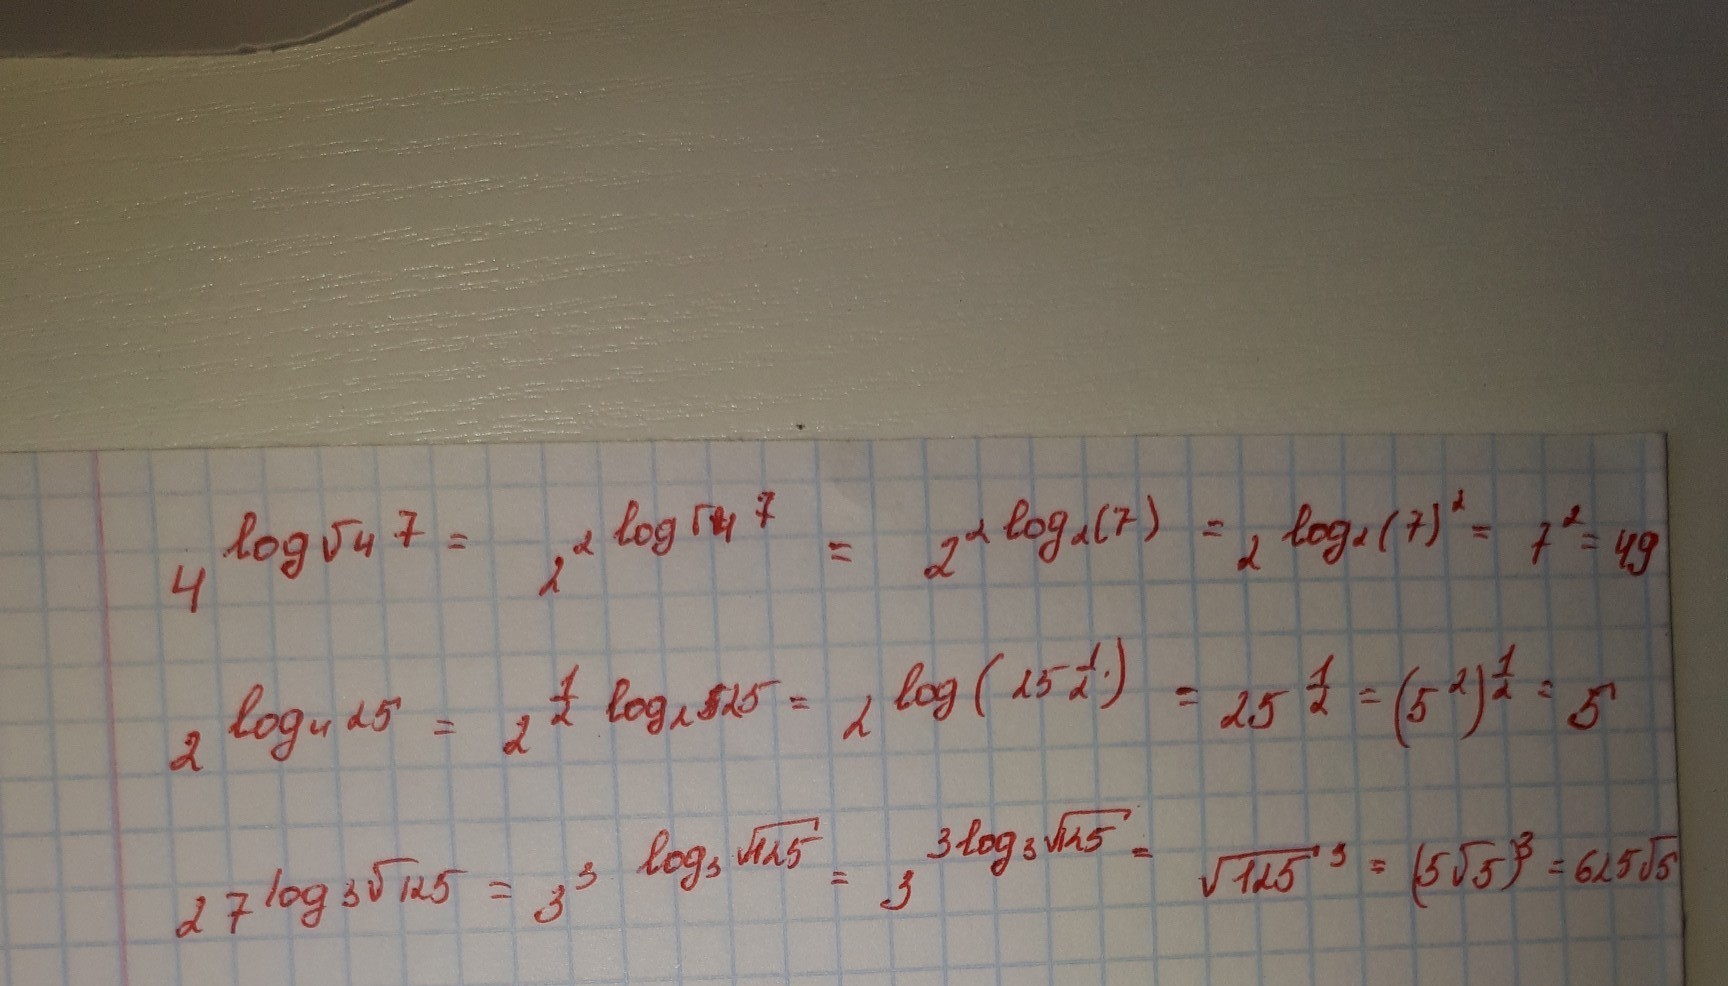 4^log√4 7 = 2^2 log√4 7 = 2^2 log₂(7) = 2^log₂(7)² = 7² = 49
2^log₄25 = 2^1/2 log₂25 = 2^log(25^1/2) = 25^1/2 = (5²)^1/2 = 5
27^log₃√125 = 3^3 log₃√125 = 3^3log₃√125 = √125³ = (5√5)³ = 625√5